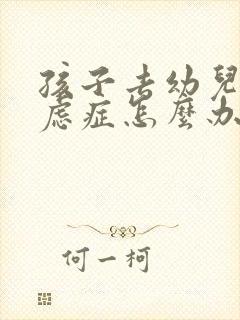 孩子去幼兒
慮症怎麼办
何一柯